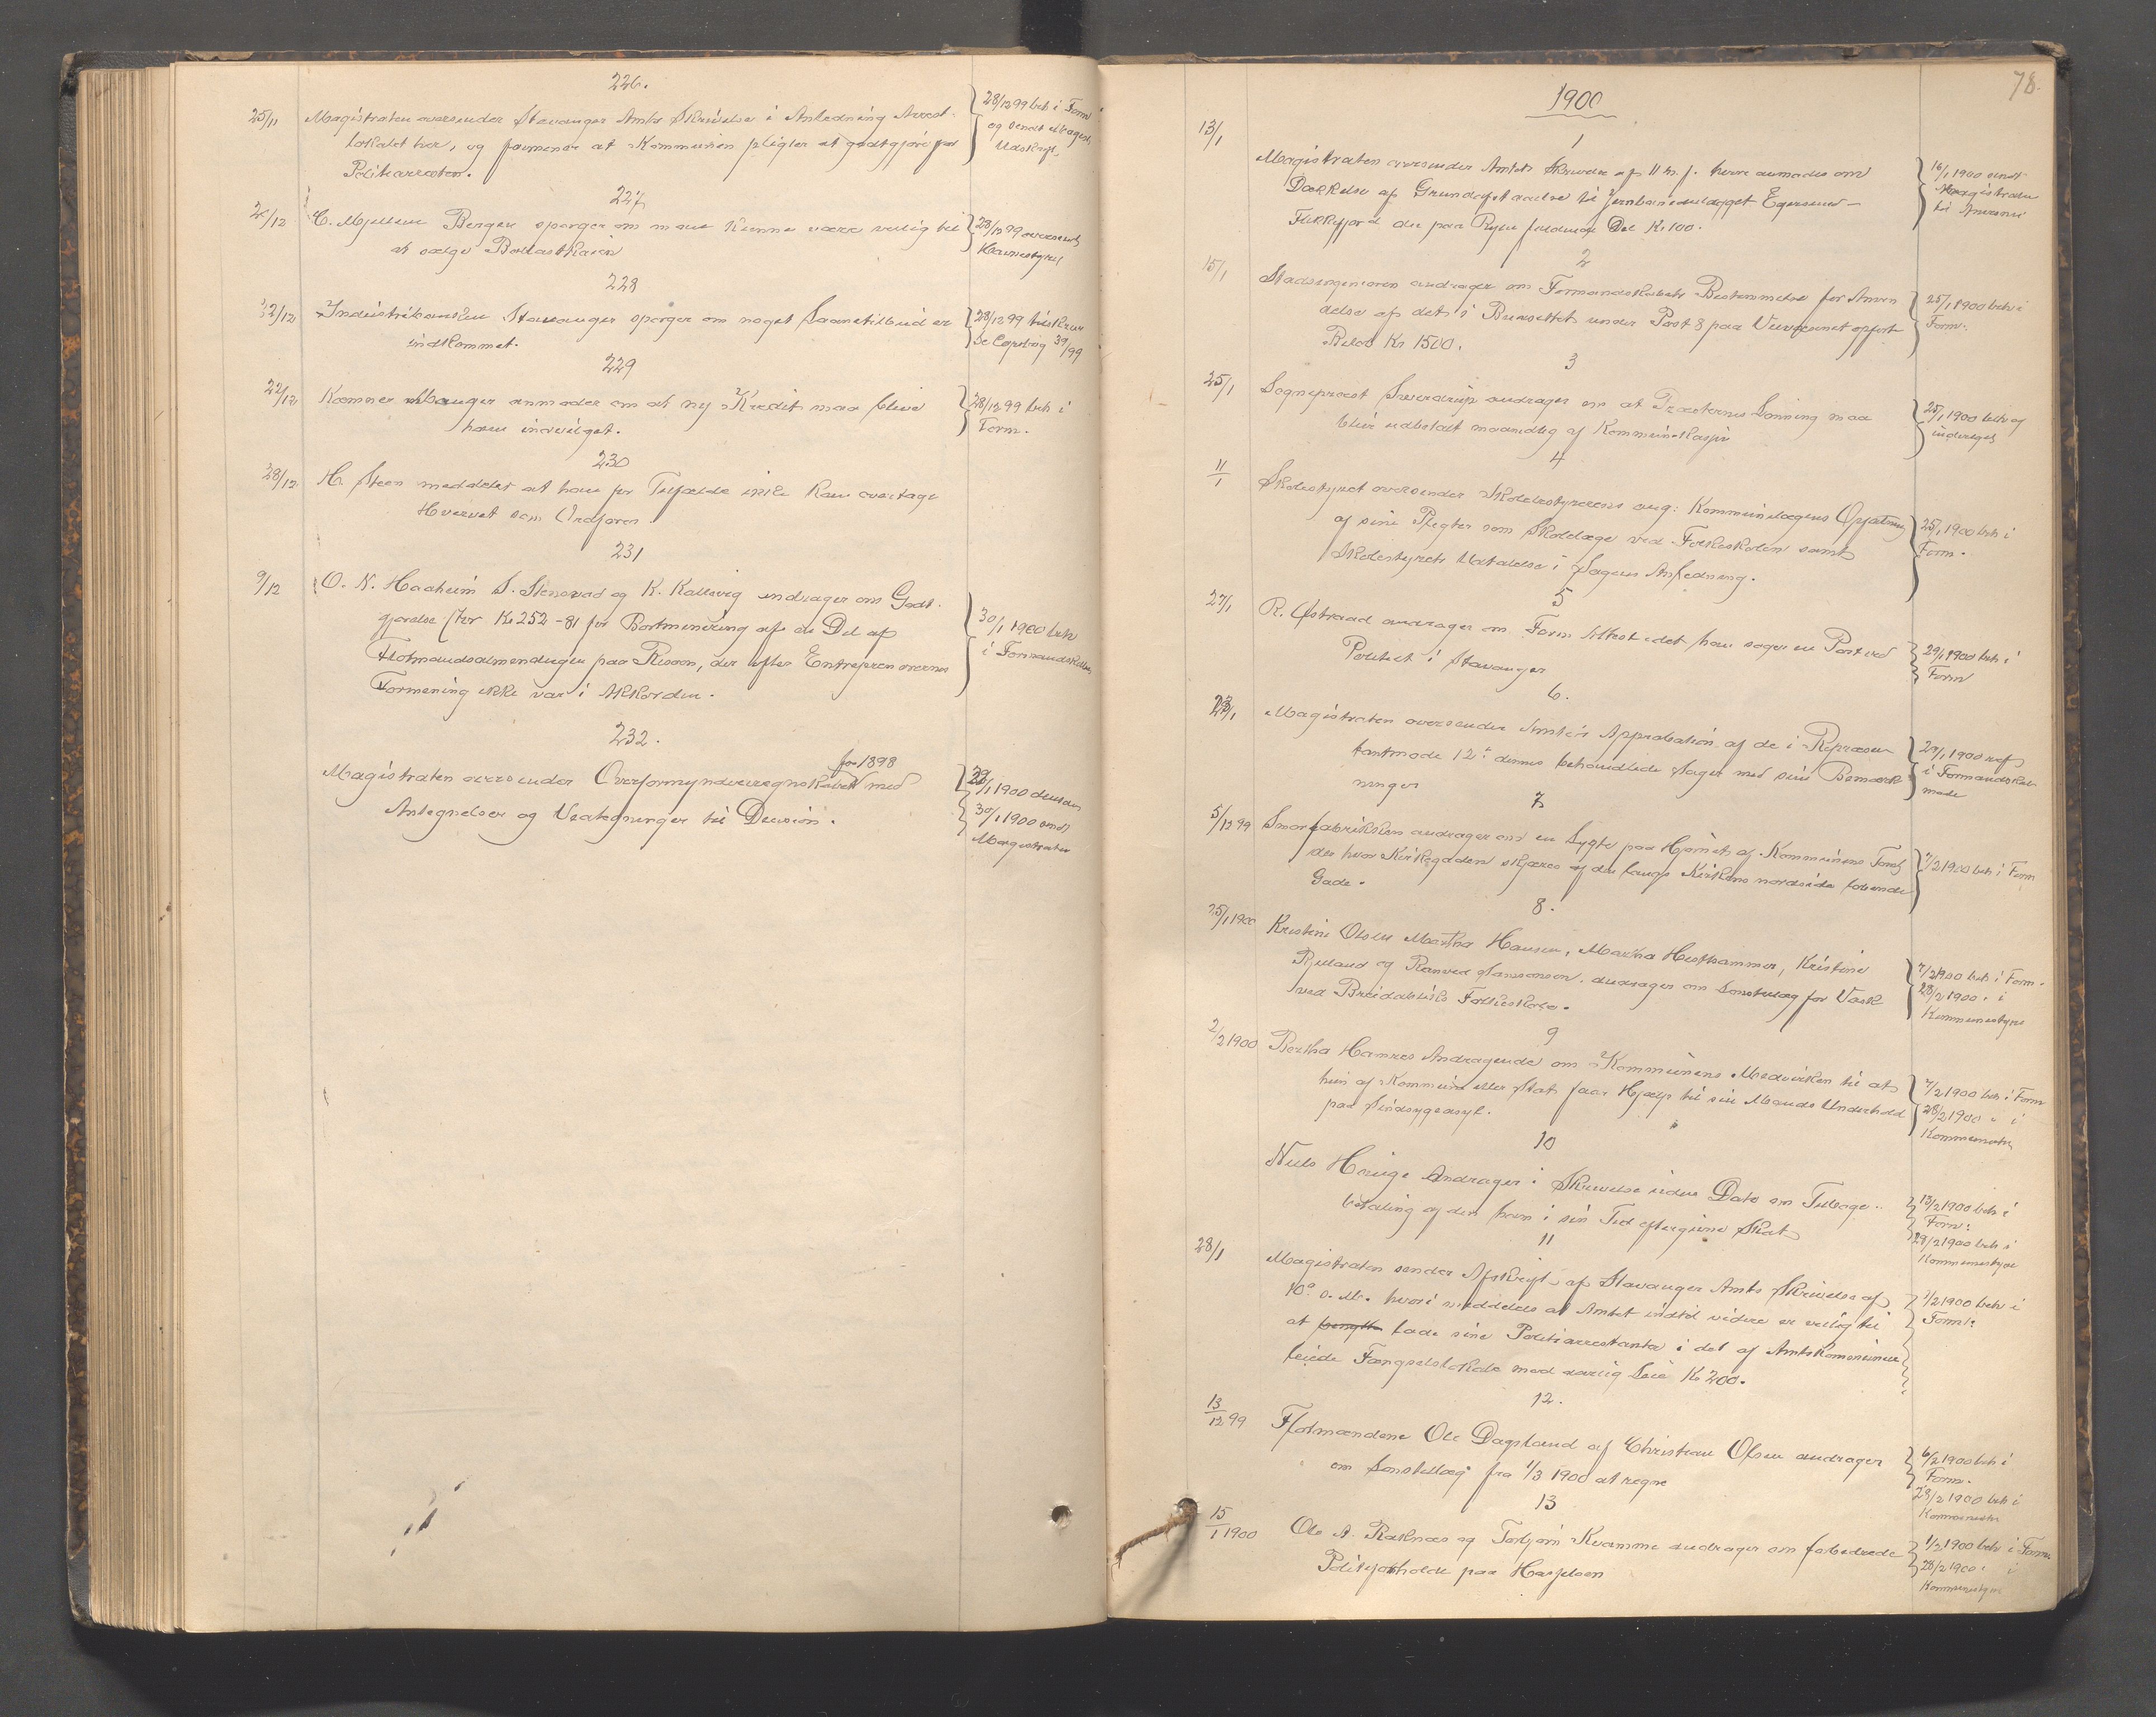 226.
25/11 Magistraten oversender Stavanger Amts Skrivelse i Anledning Arrest- 28/12 99 beh i Form
lokalet her, og formener at Kommunen pligter at godtgjøre for og sendt Magistr.
Politiarresten. Udskrift
227
C. Mjelleur Bergen spørger om man kunne være villig til 28/12 99 oversendt
at sælge Ballastkaien Havnestyret
228
22/12 Industribanken Stavanger spørger om noget Laanetilbud er 28/12 99 tilskrevet
indkommet. Se Copibog 39/99
229
22/12 Kæmner Mauger anmoder om at ny Kredit maa blive 28/12 99 beh i
ham indvilget. Form.
230
28/12 H. Steen meddeler at han for Tilfælde ikke kan overtage
Hvervet som Ordfører
231
9/12 O. N. Haaheim S. Stensrud og K. Kallevig andrager om Godt-
gjørelse stor Kr 252-81 for Bortminering af en Del af 30/1 1900 beh
Flotmandsalmendingen paa Risøen, der efter Entreprenørernes i Formandskabet
Formening ikke var i Akkorden.
232.
for 1898
Magistraten oversender Overformynderregnskabet med 1900
Antegnelser og Besvarelser til Decision. 30/1 1900 sendt
Magistraten
78.
1900
1
13/1
Magistraten oversender Amtets Skrivelse af 11 ds. f. hvori anmodes om 16/1 1900 sendt
Dækkelse af Grundafstaaelse til Jernbaneanlægget Egersund- Magistraten
Flekkefjord den paa Byen faldende Del Kr 100.
2
15/1 Stadsingeniøren andrager om Formandskabets Bestemmelse for Anven 25/1 1900 beh i
delse af det i Budgettet under Post 8 paa Veivæsenet opført Form.
Beløb Kr 1500.
3
25/1 Sogneprest Sverdrup andrager om at Præsternes Lønning maa 25/1 1900 beh og
blive udbetalt maanedlig af Kommunekassen
4
11/1 Skolestyret oversender Skolebestyrerens ang: Kommunelægens Opfatning 25/1 1900 beh i
af sine Pligter som Skolelæge ved Folkeskolen samt Form.
Skolestyrets Udtalelse i Sagens Anledning.
5
27/1 R. Østraad andrager om Form Attest idet han søger en Post ved 29/1 1900 beh i
Politiet i Stavanger Form
6.
Magistraten oversender Amtets Approbation af de i Repræsen 1900 ref
tantmøde 12te dennes behandlede Sager med sine Bemærk i Formandskabs
ninger møde
7
5/12 99 Smørfabrikken andrager om en Lygte paa Hjørnet af Kommunens Torv 7/2 1900 beh i Form
der hvor Kirkegaden skjæres af den langs Kirkens nordside løbende
Gade.
8.
25/1 1900 Kristine Olsen Martha Hansen, Martha Hesthammer, Kristine 7/2 1900 beh i Form.
Rjuland og Ranved Hansensen andrager om Lønstillæg for Vask 28/2 1900 " i
ved Breidablik Folkeskole. Kommunestyre
9
2/2 1900 Bertha Hamres Andragende om Kommunens Medvirken til at 7/2 1900 beh i Form
hun af Kommune eller Stat faar Hjælp til sin Mands Underhold 28/2 1900 " i
paa Sindsygeasyl. Kommunestyre
10
Niels Hauge Andrager i Skrivelse uden Dato om Tilbage- 13/2 1900 beh i
betaling af den ham i sin Tid eftergivne Skat Form:
28/2 1900 beh i
Kommunestyre
11
28/1 Magistraten sender Afskrift af Stavanger Amts Skrivelse af 7/2 1900 beh i
10de d. M. hvori meddeles at Amtet indtil videre er villig til Form:
at benytte lade sine Politiarrestanter i det af Amtskommunen
leiede Fængselslokale mod aarlig Leie Kr 200.
12.
13/12 99 Flotmændene Ole Dagsland og Christian Olsen andrager 6/2 1900 beh i
om Lønstillæg fra 1/3 1900 at regne Form.
28/2 1900 beh i
Kommunestyre
13
15/1 1900 Ole A. Raknæs og Torbjørn Kvamme andrager om forbedrede 1/2 1900 beh i Form
Politiforholde paa Havneøen 28/2 1900 " i
Kommunestyre